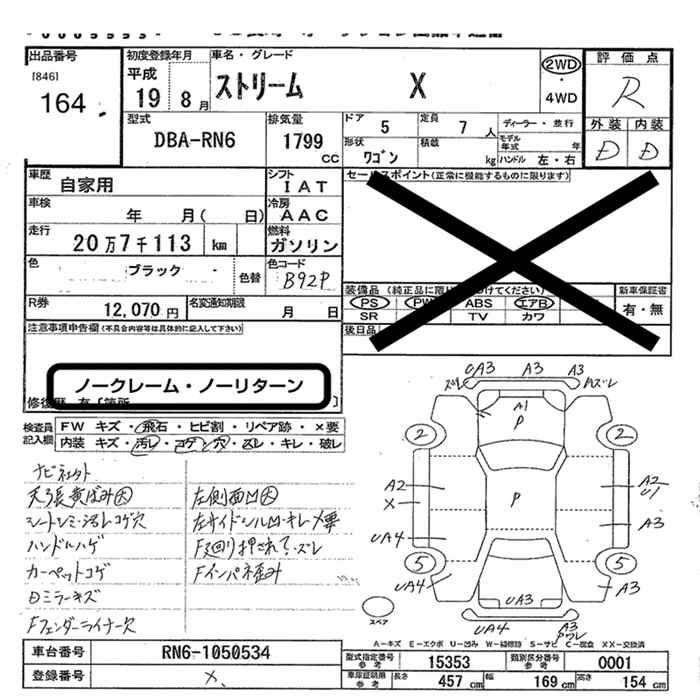 出品番号
[846]
164
初度登録年月
平成
19 8月
車名・グレード
ストリーム X
2WD
・
4WD
評価点
R
外装 内装
D D
型式
DBA-RN6
排気量
1799
CC
ドア 5
定員 7 人
ディーラー・並行
モデル
年式 年
形状
ワゴン
積載
kg
ハンドル 左・右
車歴
自家用
シフト
I A T
車検
年 月( 日)
冷房
A A C
走行
20万7千113 km
燃料
ガソリン
色
ブラック
色替
色コード
B92P
R券
12,070円
名変通知期限
月 日
セールスポイント(正常に機能するものに限ります)
新車保証書
有・無
PS PW ABS エアB
SR TV カワ
後日品
注意事項申告欄(不具合内容等は具体的に記入して下さい)
ノークレーム・ノーリターン
検査員
記入欄
FW キズ・飛石・ヒビ割・リペア跡・×要
内装 キズ・汚レ・コゲ・穴・ズレ・キレ・破レ
ナビネット
天張黄ばみ大
シートシミ・汚レコゲ穴
ハンドルハゲ
カーペットコゲ
Dミラーキズ
Fフェンダーライナー欠
左側面凹大
左サイドシル凹・キレ×要
F廻り押され?・ズレ
Fインパネ歪み
UA3 A3 A3
ズレ ズレ
A1
P
2 2
A2
X
P
A2
U1
A3
UA4
5 5
UA4
UA3
A3
UA4
A3
スペア
A－キズ E－エクボ U－凹み W－補修跡 S－サビ C－腐食 XX－交換済
車台番号
RN6-1050534
登録番号
型式指定番号
参考
15353
類別区分番号
参考
0001
車庫証明用
参考
長さ 457 cm
幅 169 cm
高さ 154 cm